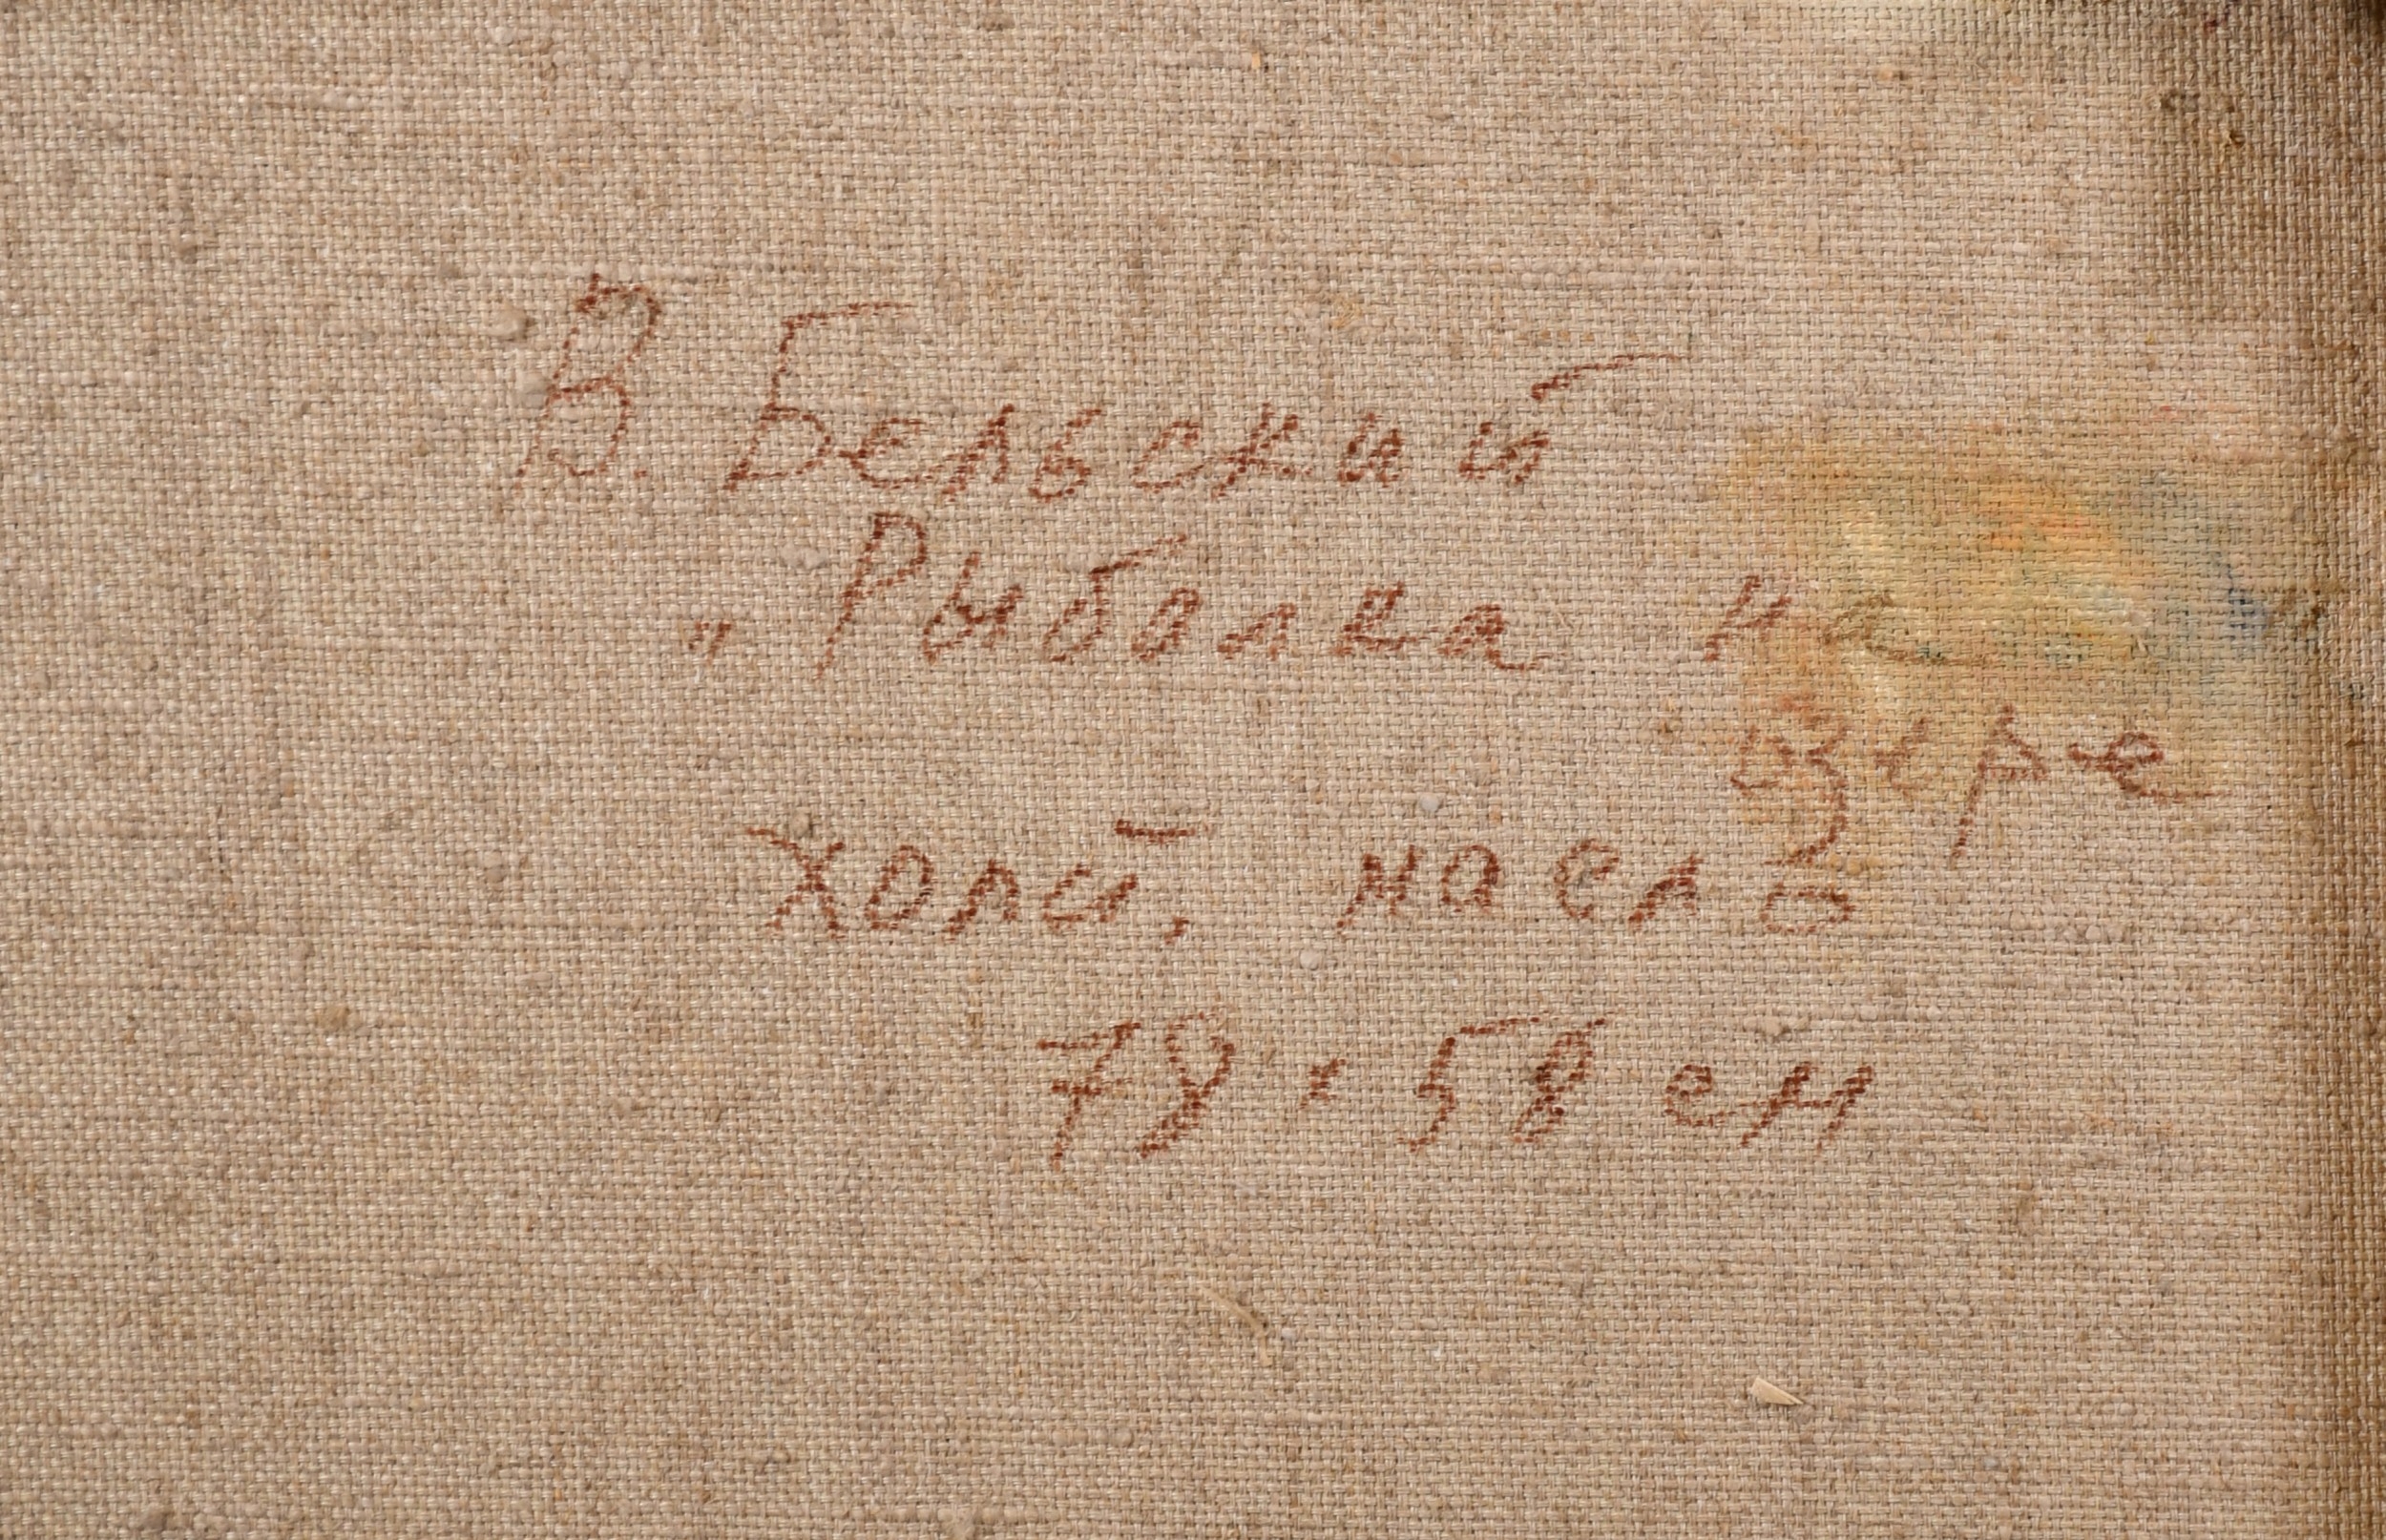 В. Бельский
„ Рыбалка на
озере
холст, масло
78 x 58 см